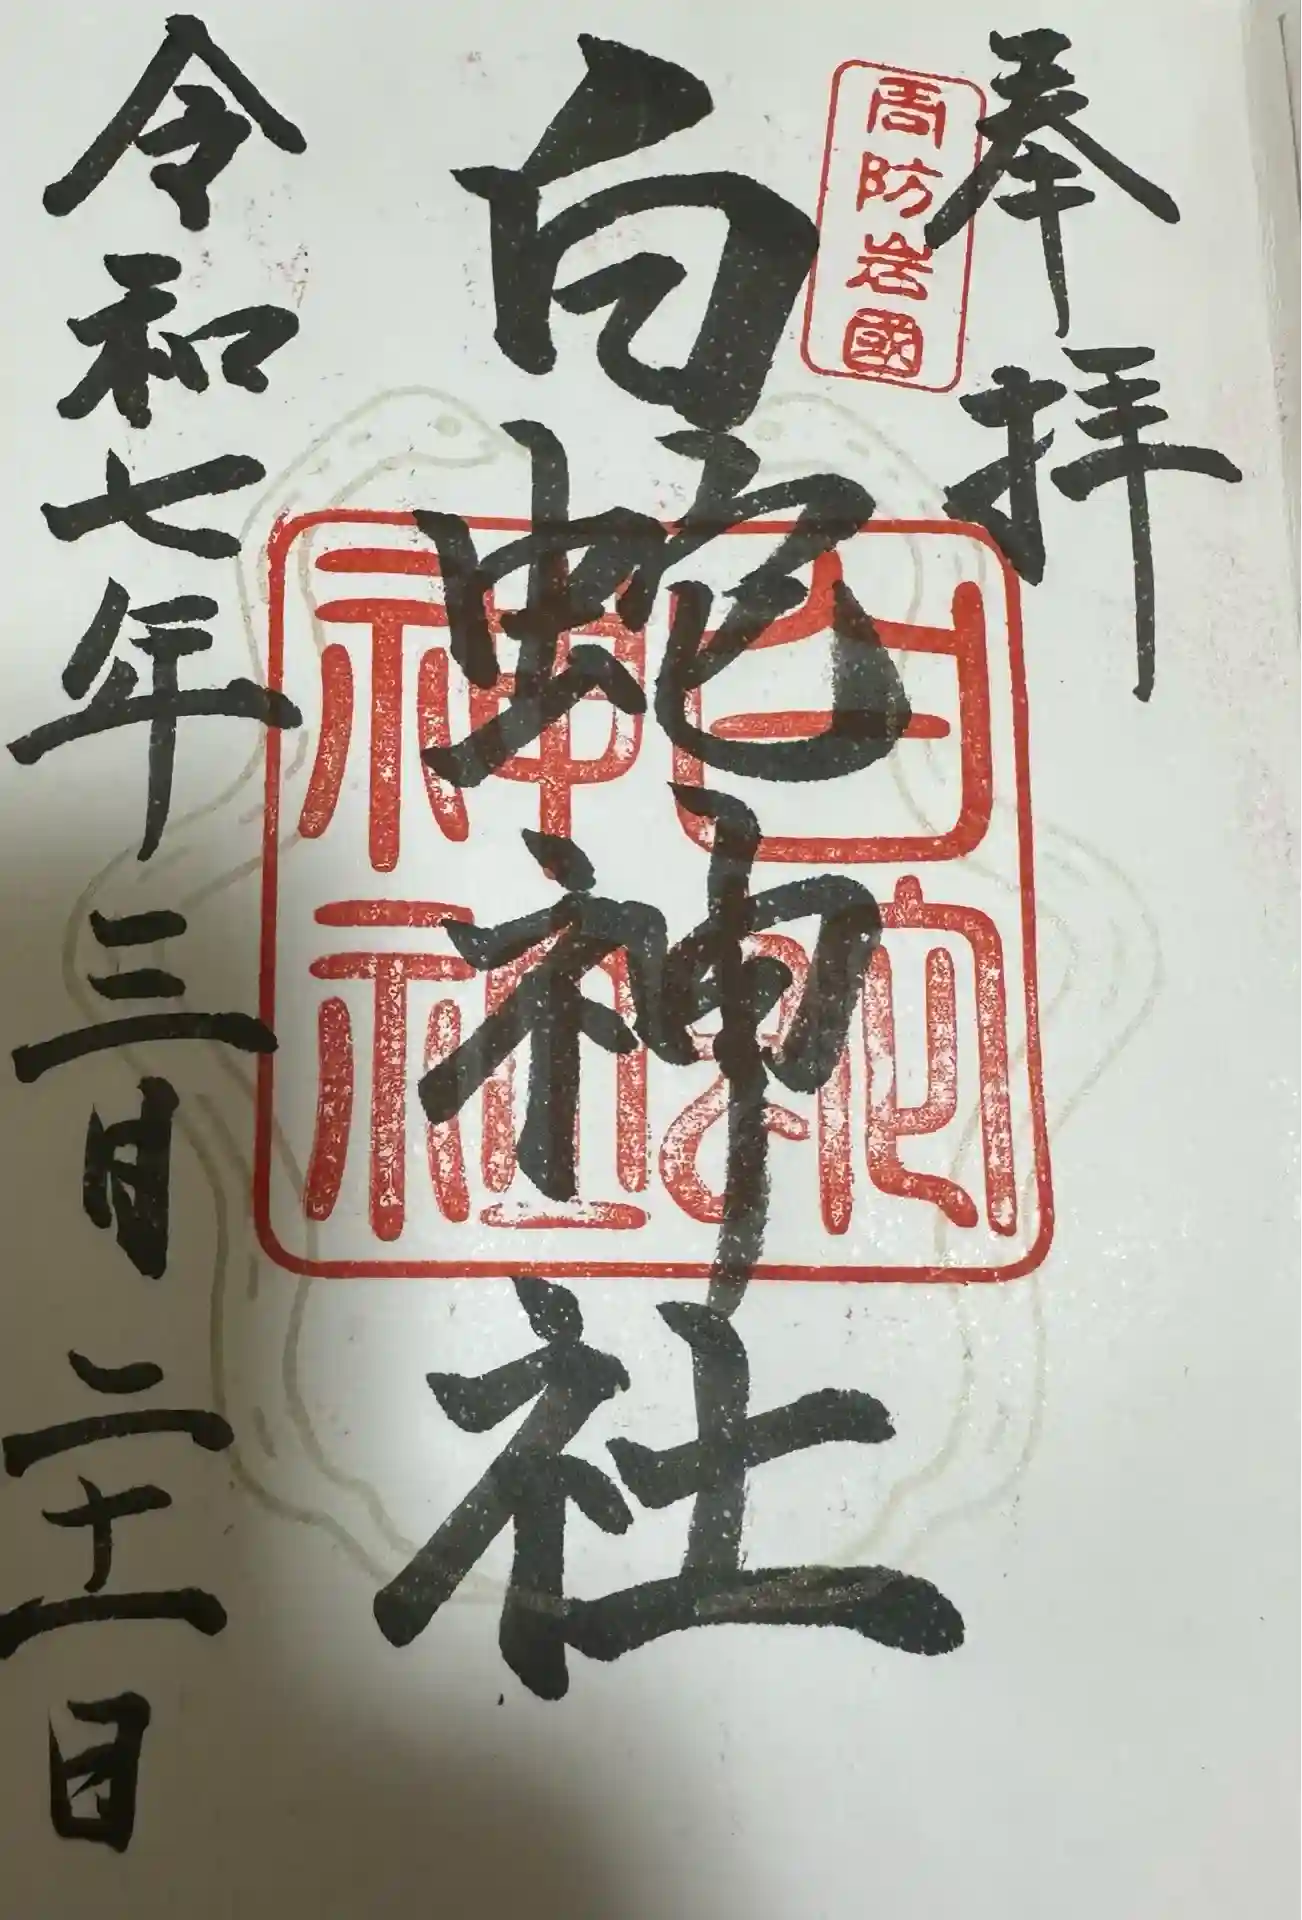 奉拝
周防岩國
白蛇神社
白蛇神社
令和七年三月二十一日